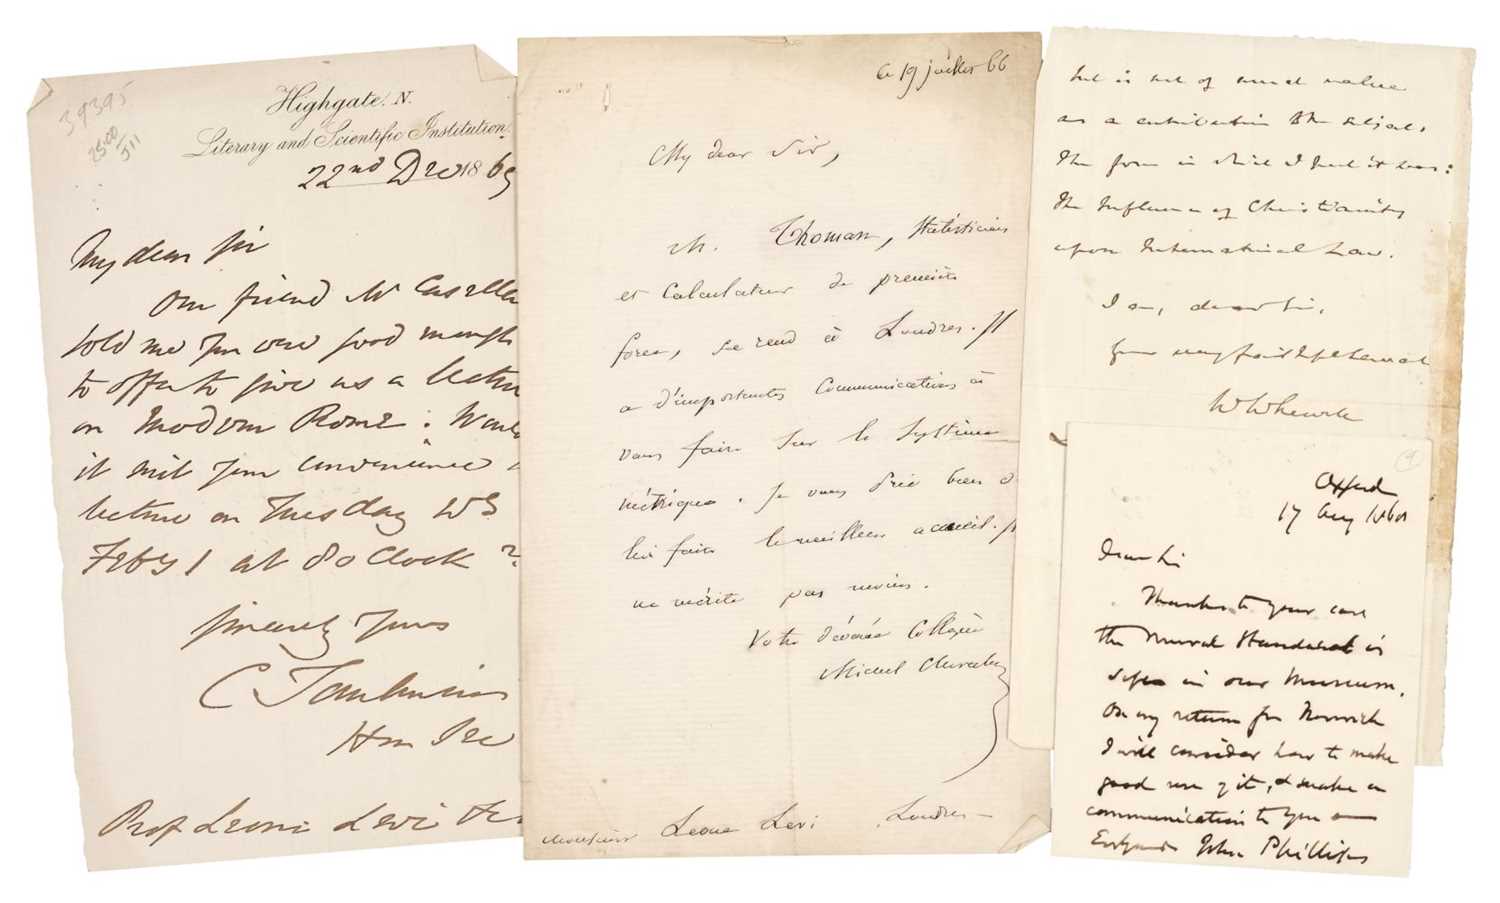 39395
25.00
J11
Highgate. N.
Literary and Scientific Institution.
22nd Dec 1869
My dear Sir
Our friend Mr Casella
told me you were good enough
to offer to give us a lecture
on Modern Rome. Would
it suit your convenience
lecture on Tuesday
Feby 1 at 8 o Clock ?
Sincerely Yours
C Tomlinson
Hon Sec
Prof Leone Levi
le 19 juillet 66
My dear Sir,
M. Thoman, Statisticien
et Calculateur de première
force, se rend à Londres. Il
a d'importantes Communications à
vous faire sur le Système
métrique. Je vous prie bien d
lui faire le meilleur accueil. Il
ne mérite pas moins.
Votre dévoué Collègue
Michel Chevalier
Monsieur Leone Levi Londres
but is not of much value
as a contribution to the subject.
The form in which I put it was:
The Influence of Christianity
upon International Law.
I am, dear Sir,
your very faithful servant
W Whewell
9
Oxford
17 Aug 1868
Dear Sir
Thanks to your care
the Mural Standard is
safe in our Museum.
On my return from Norwich
I will consider how to make
good use of it, & make a
communication to you
John Phillips